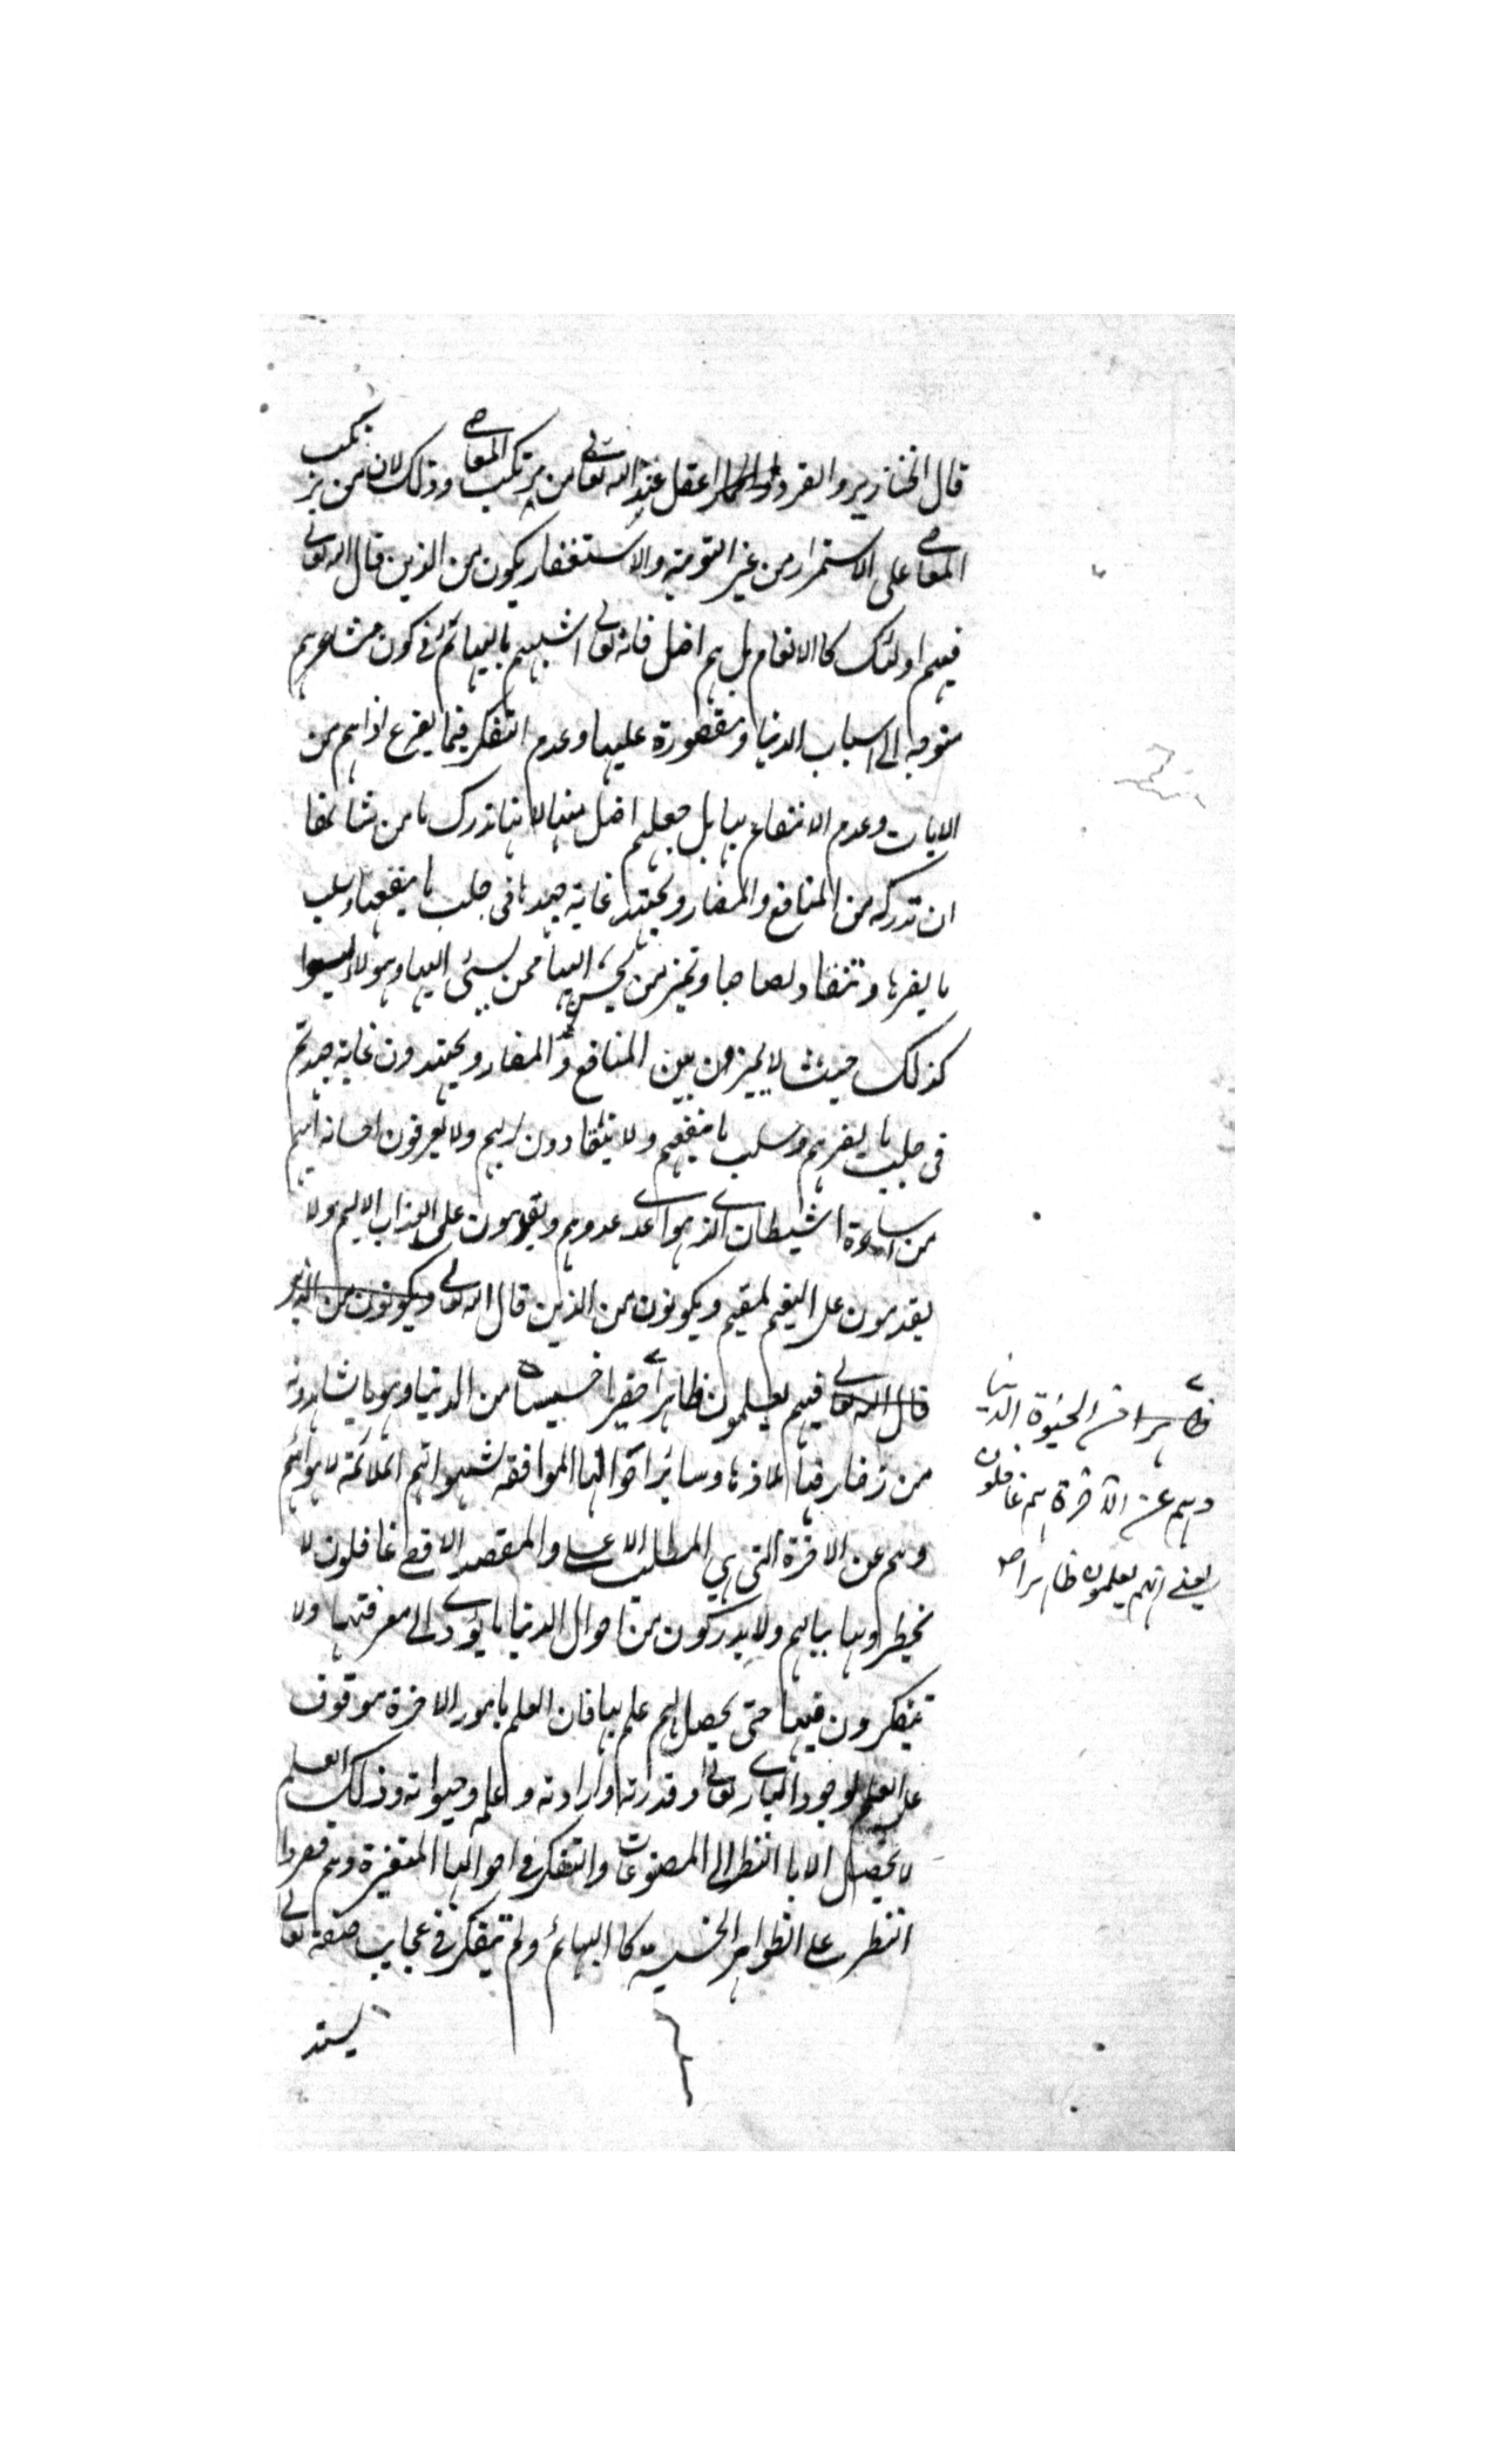 قال الخنازير والقرد والحمار اعقل عند الله تعالى من يرتكب المعاصي وذلك لان من يرتكب
المعاصي على الاستمرار من غير التوبة والاستغفار يكون من الذين قال الله تعالى
فيهم اولئك كالانعام بل هم اضل فانه تعالى اشبههم بالبهائم في كون مشاعرهم
متوجه الى اسباب الدنيا ومقصورة عليها وعدم التفكر فيما يقرع اذانهم من
الايات وعدم الانتفاع بها بل جعلهم اضل منها لانها تدرك ما من شانها
ان تدركه من المنافع والمضار وتجتهد غاية جهدها في جلب ما ينفعها وسلب
ما يضرها وتنقاد لصاحبا وتميز من يحسن اليها ممن يسئ اليها وهولاء ليسوا
كذلك حيث لا يميزون بين المنافع والمضار ويجتهدون غاية جهدهم
في جلب ما يضرهم وسلب ما ينفعهم ولا ينقادون لربهم ولا يعرفون احسانه اليهم
من اساءة الشيطان الذي هو اعدى عدوهم ويقدمون على العذاب الاليم ولا
يقدمون على النعيم المقيم ويكونون من الذين قال الله تعالى ويكونون من الذين
قال الله تعالى فيهم يعلمون ظاهرا حقيرا خسيسا من الدنيا وهو ما يشاهدونه
من زخارفها وملاذها وسائر احوالها الموافقة لشهواتهم الملائمة لاهوائهم
وهم عن الاخرة التي هي المطلب الاعلى والمقصد الاقصى غافلون لا
يخطرونها ببالهم ولا يدركون من احوال الدنيا ما يؤدي الى معرفتها ولا
يتفكرون فيها حتى يحصل لهم علم بها فان العلم بامور الاخرة موقوف
على العلم بوجود الباري تعالى وقدرته وارادته وعلمه وحيوته وذلك العلم
لا يحصل الا بالنظر الى المصنوعات والتفكر في احوالها المتغيرة وهم قصروا
النظر على الظواهر الحسية كالبهائم ولم يتفكر في عجايب صنعه تعالى
ظاهرا من الحيوة الدنيا
وهم عن الآخرة هم غافلون
يعني انهم يعلمون ظاهرا